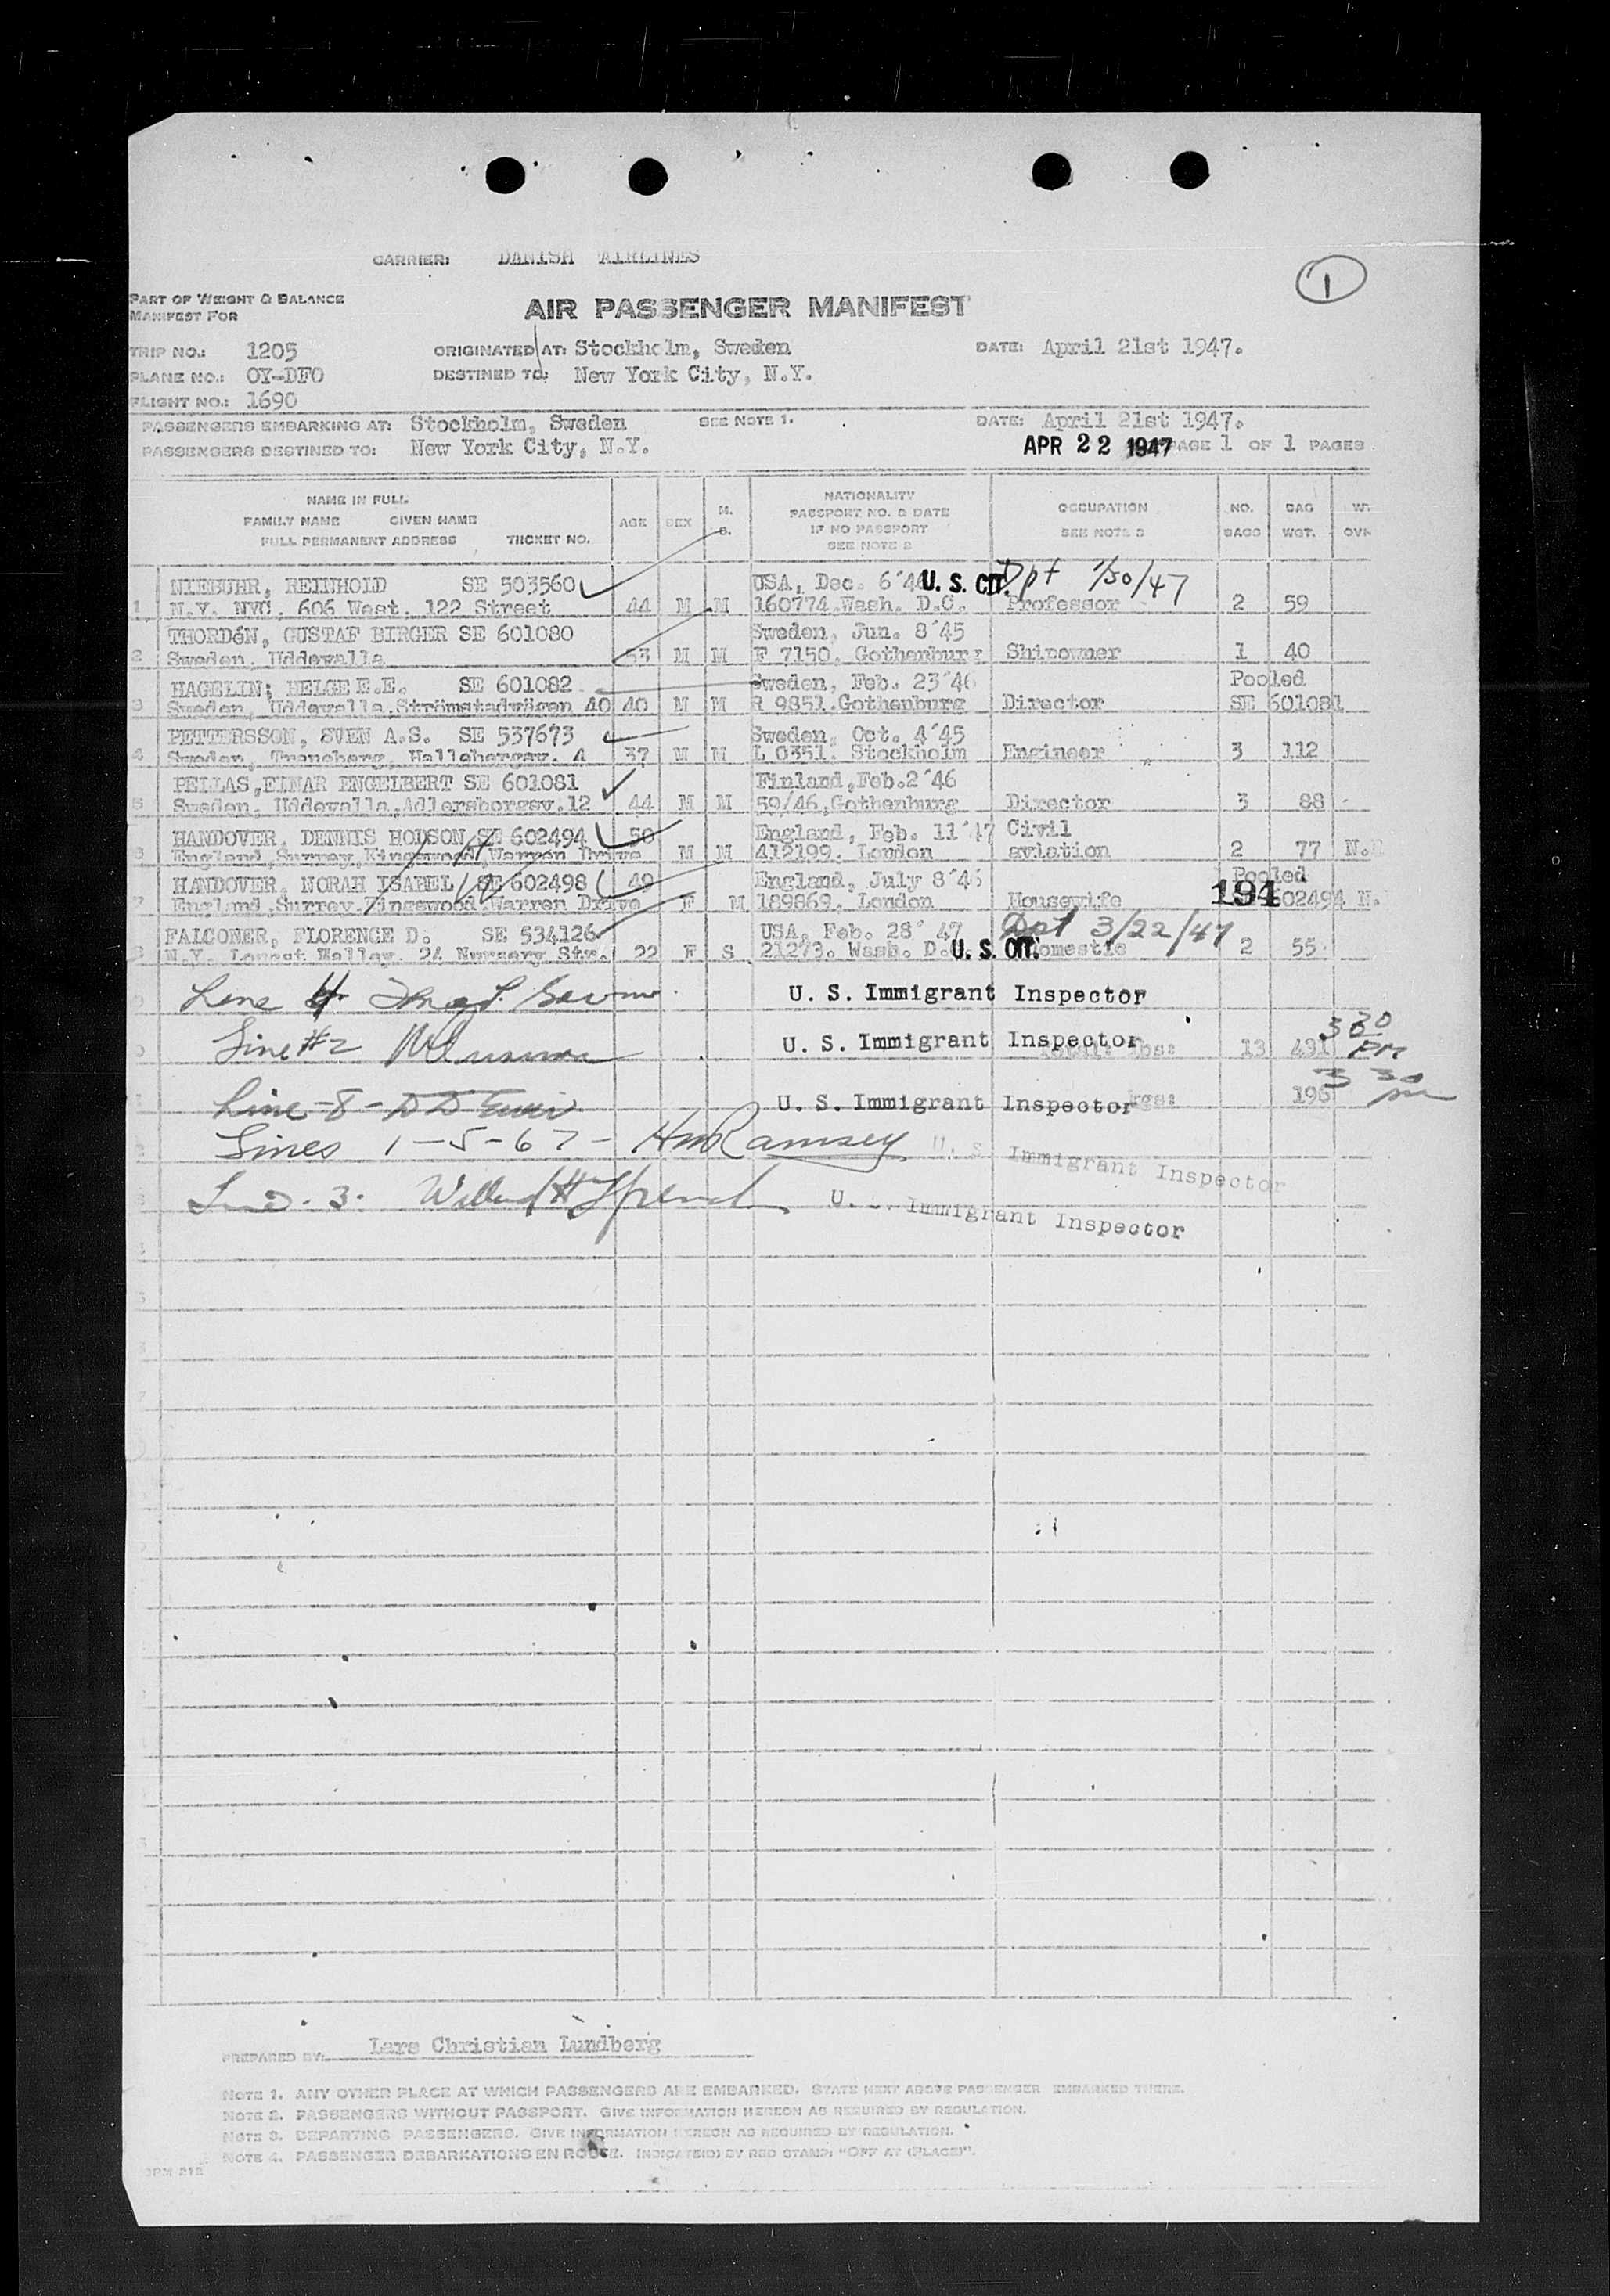 CARRIER: DANISH AIRLINES
1
PART OF WEIGHT & BALANCE
MANIFEST FOR
AIR PASSENGER MANIFEST
TRIP NO.: 1205 ORIGINATED AT: Stockholm, Sweden DATE: April 21st 1947.
PLANE NO.: OY-DFO DESTINED TO: New York City, N.Y.
FLIGHT NO.: 1690
PASSENGERS EMBARKING AT: Stockholm, Sweden SEE NOTE 1. DATE: April 21st 1947.
PASSENGERS DESTINED TO: New York City, N.Y. APR 22 1947 PAGE 1 OF 1 PAGES
NAME IN FULL
FAMILY NAME GIVEN NAME
FULL PERMANENT ADDRESS TICKET NO.
AGE SEX M. S.
NATIONALITY
PASSPORT NO. & DATE
IF NO PASSPORT
SEE NOTE 2
OCCUPATION
SEE NOTE 3
NO. BAGS
BAG WGT.
NIEBUHR, REINHOLD SE 503560 USA, Dec. 6'46 U. S. CIT. Dpt 1/30/47
1 N.Y. NYC. 606 West. 122 Street 44 M M 160774.Wash. D.C. Professor 2 59
THORDéN, GUSTAF BIRGER SE 601080 Sweden, Jun. 8'45
2 Sweden. Uddewalla 53 M M F 7150. Gothenburg Shipowner 1 40
HAGELIN; HELGE E.E. SE 601082 Sweden, Feb. 23'46 Pooled
3 Sweden, Uddewalla.Strömstadvägen 40 40 M M R 9851.Gothenburg Director SE 601081
PETTERSSON, SVEN A.S. SE 537673 Sweden, Oct. 4'45
4 Sweden, Traneberg, Hallebergsv. A 37 M M L 0351. Stockholm Engineer 3 112
PELLAS,EINAR ENGELBERT SE 601081 Finland,Feb.2'46
5 Sweden. Uddewalla.Adlersborgsv.12 44 M M 59/46,Gothenburg Director 3 88
HANDOVER, DENNIS HODSON SE 602494 50 England, Feb. 11'47 Civil
6 England Surrey,Kingswood,Warren Drive M M 412199. London aviation 2 77
HANDOVER, NORAH ISABEL SE 602498 49 England, July 8'46 Pooled
7 England,Surrey.Kingswood.Warren Drive F M 189869. London Housewife 194 602494
FALCONER, FLORENCE D. SE 534126 USA, Feb. 28' 47 Dpt 3/22/47
8 N.Y. Locust Walley. 24 Nursery Str. 22 F S 21273. Wash. D. U. S. CIT. Domestic 2 55
Line 4 U. S. Immigrant Inspector
Line #2 U. S. Immigrant Inspector Total: lbs: 13 431 3 30 PM
Line-8- U. S. Immigrant Inspector kgs: 196 3 30
Lines 1-5-6 7- HmRamsey U. S. Immigrant Inspector
3. U. S. Immigrant Inspector
PREPARED BY: Lars Christian Lundberg
NOTE 1. ANY OTHER PLACE AT WHICH PASSENGERS ARE EMBARKED. STATE NEXT ABOVE PASSENGER EMBARKED THERE.
NOTE 2. PASSENGERS WITHOUT PASSPORT. GIVE INFORMATION HEREON AS REQUIRED BY REGULATION.
NOTE 3. DEPARTING PASSENGERS. GIVE INFORMATION HEREON AS REQUIRED BY REGULATION.
NOTE 4. PASSENGER DEBARKATIONS EN ROUTE. INDICATE(D) BY RED STAMP: "OFF AT (PLACE)".